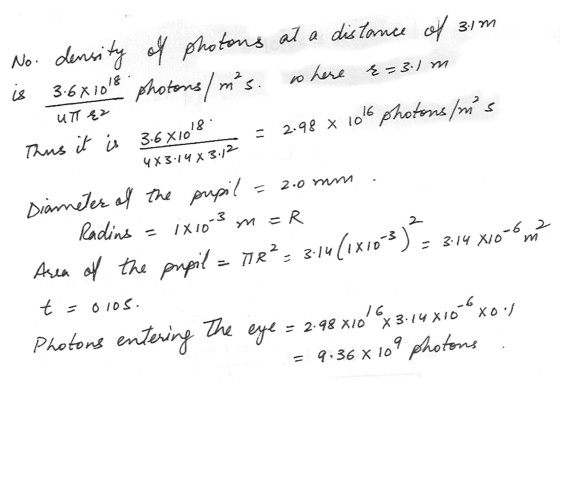 No. density of photons at a distance of 3.1 m
is 3.6×10¹⁸ / 4π r² photons/m² s. where r = 3.1 m
Thus it is 3.6×10¹⁸ / 4×3.14×3.1² = 2.98 × 10¹⁶ photons/m² s
Diameter of the pupil = 2.0 mm.
Radius = 1×10⁻³ m = R
Area of the pupil = πR² = 3.14 (1×10⁻³)² = 3.14 ×10⁻⁶ m²
t = 0.10 s.
Photons entering the eye = 2.98 ×10¹⁶ × 3.14 ×10⁻⁶ × 0.1
= 9.36 × 10⁹ photons.